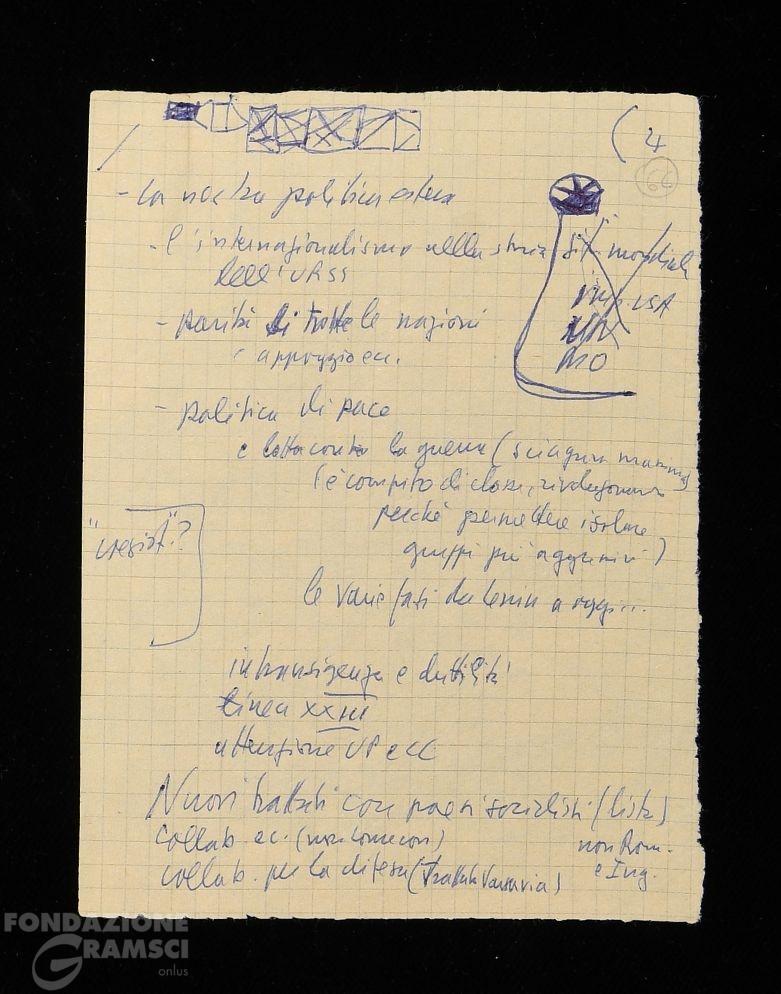 (4
66
- la nostra politica estera
- l'internazionalismo nella storia
dell'URSS
- parità di tutte le nazioni
e appoggio ec.
sit. mondiale
imp. USA
MO
- politica di pace
e lotta contro la guerra (sciagura
(è compito di classe, rivoluzionario
perché permette isolare
gruppi più aggressivi)
"coesist."?
le varie fasi da Lenin a oggi...
intransigenza e duttilità
linea XXIII
attenzione UP e CC
Nuovi trattati con paesi socialisti (lista)
collab. ec. (non Comecon)
non Rom.
e Ung.
collab. per la difesa (Trattato Varsavia)
FONDAZIONE
GRAMSCI
onlus